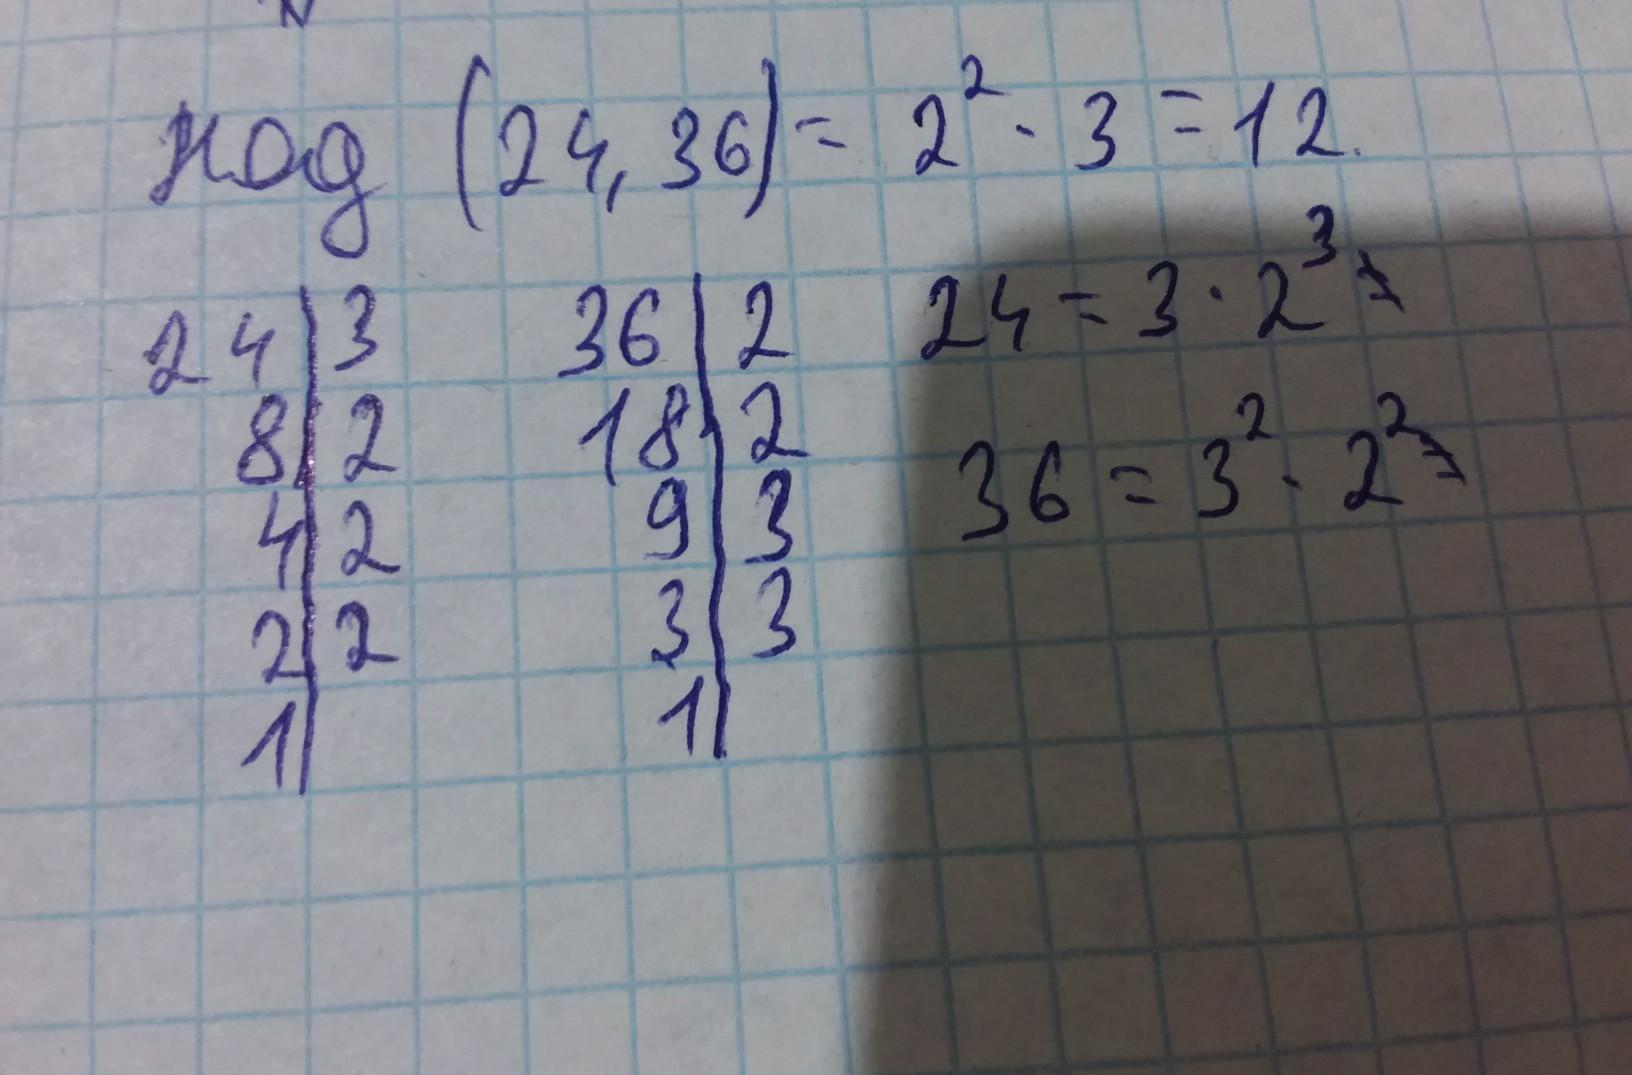 нод (24, 36) = 2² · 3 = 12.
24 | 3
8 | 2
4 | 2
2 | 2
1 |
36 | 2
18 | 2
9 | 3
3 | 3
1 |
24 = 3 · 2³
36 = 3² · 2²